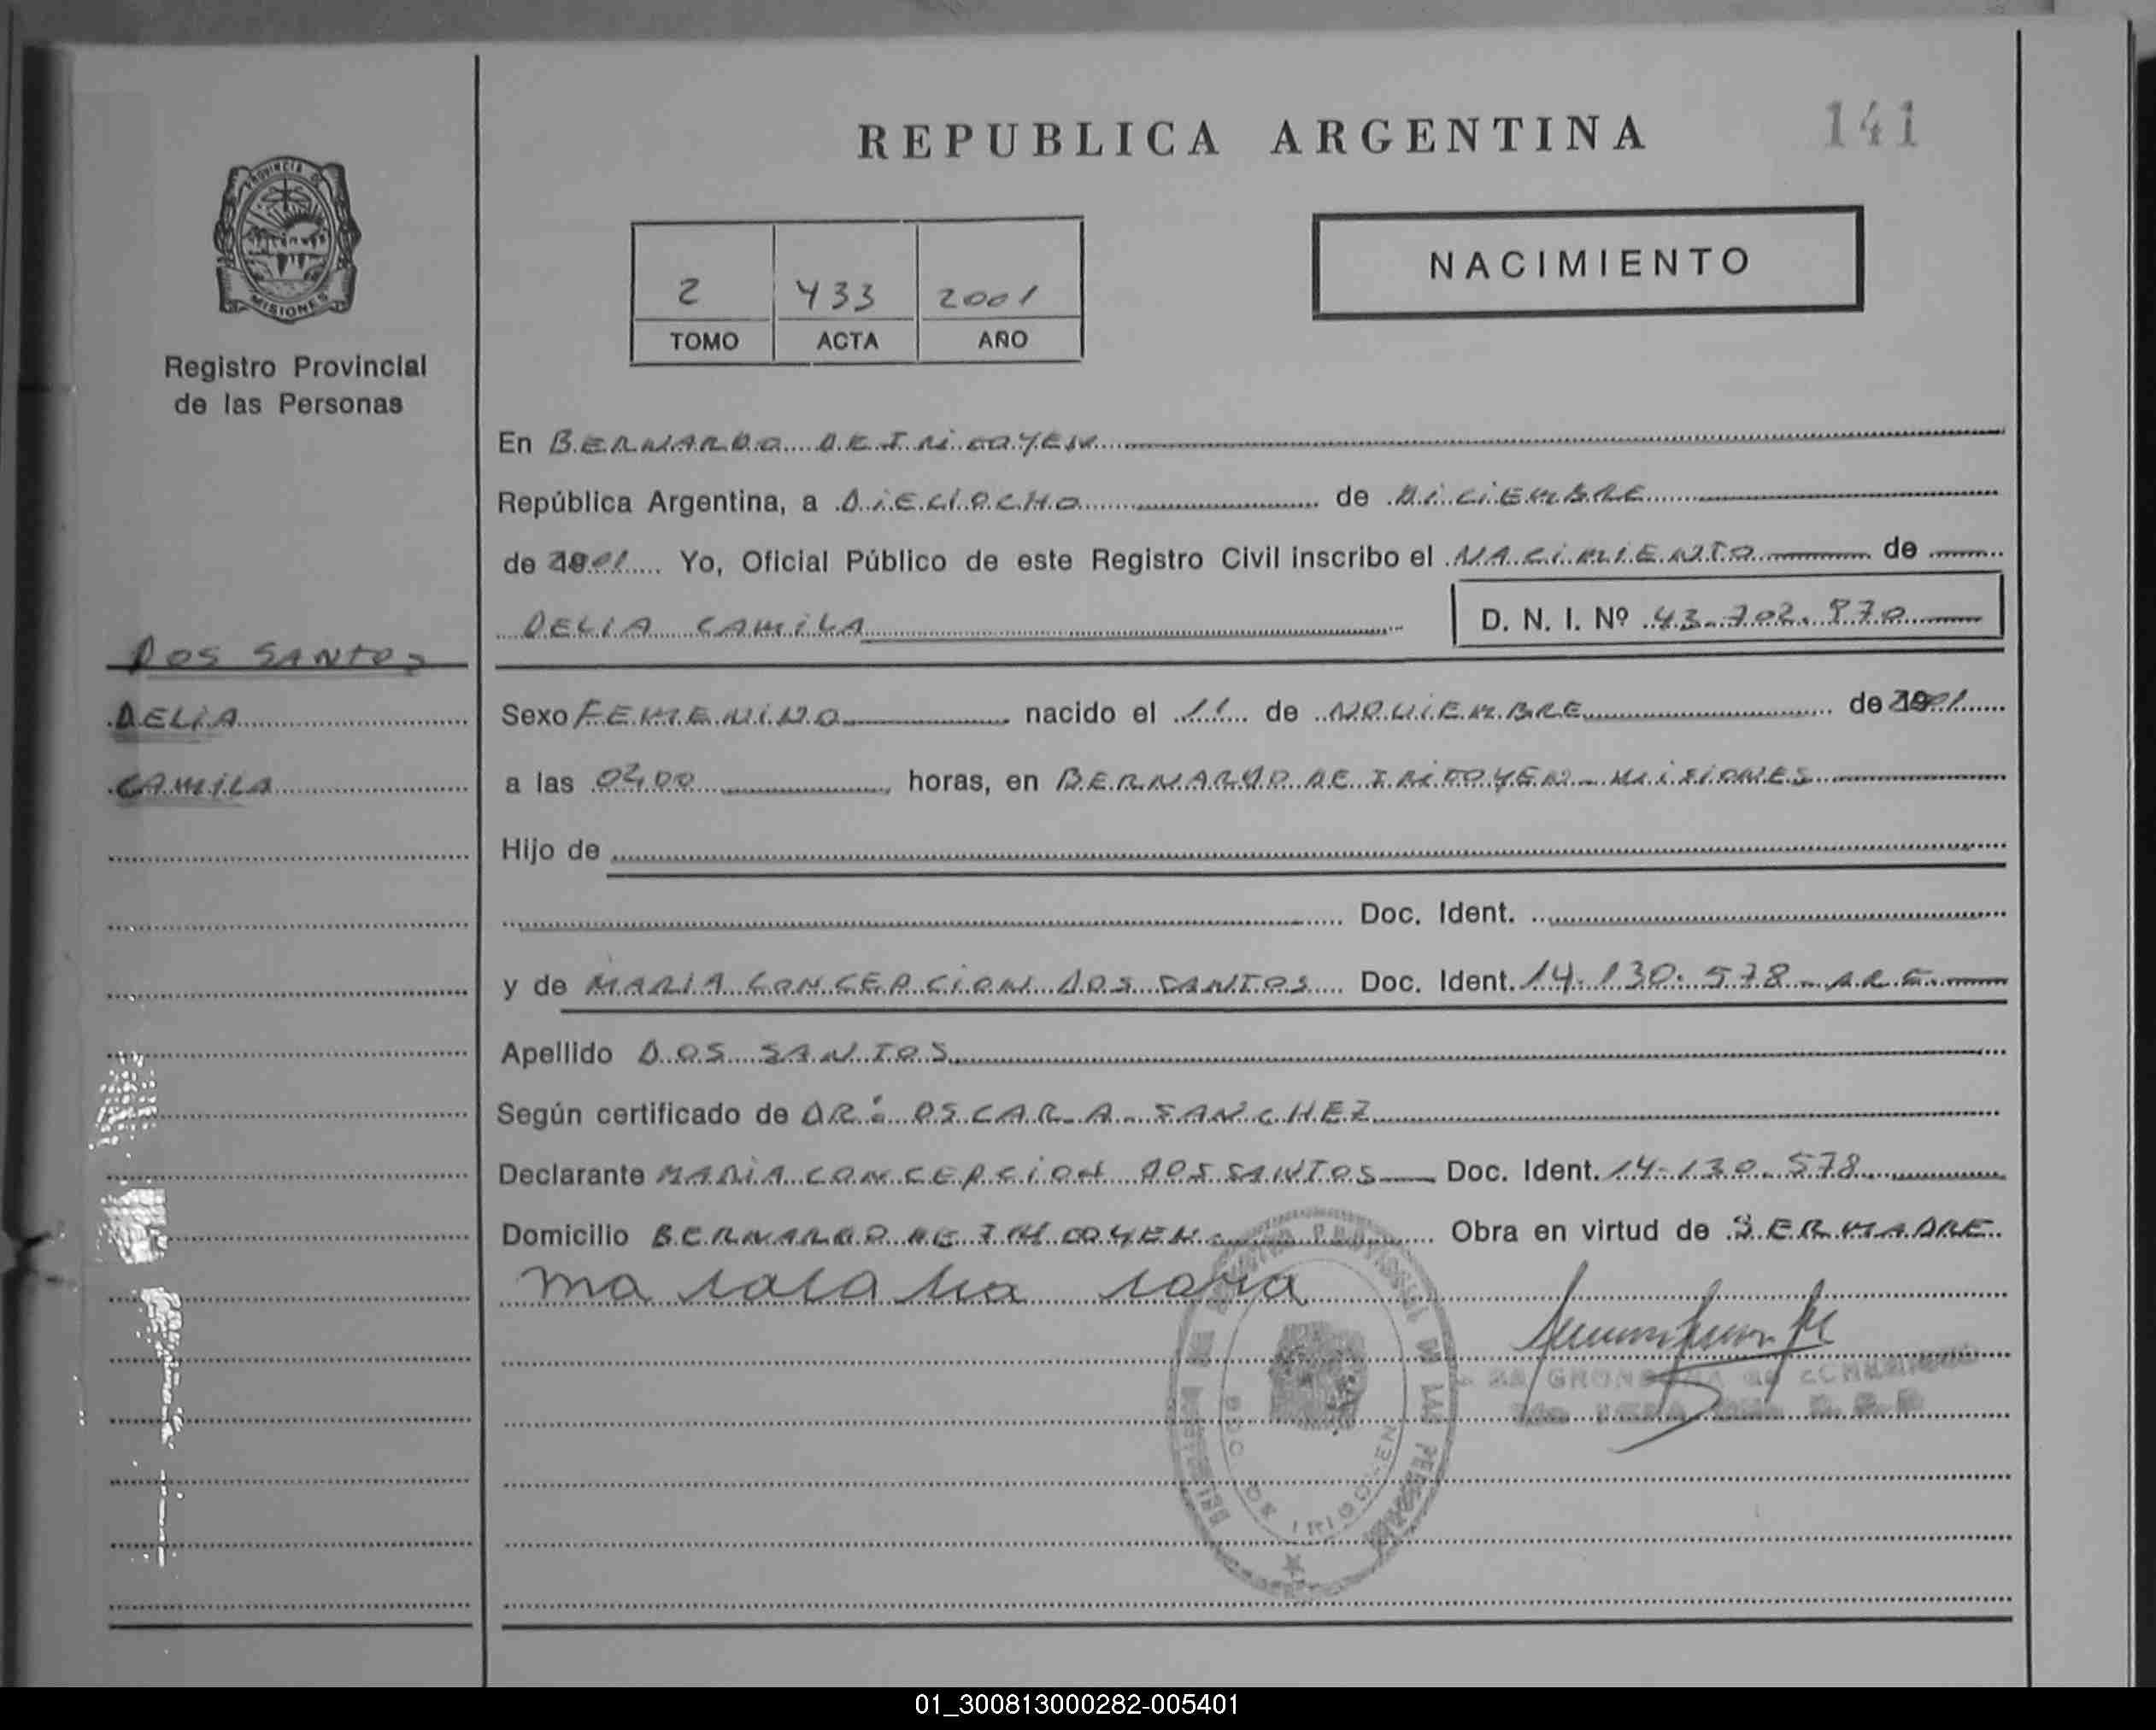 REPUBLICA ARGENTINA
141
PROVINCIA DE
MISIONES
Registro Provincial
de las Personas
NACIMIENTO
2 433 2001
TOMO ACTA AÑO
En BERNARDO DE IRIGOYEN
República Argentina, a DIECIOCHO de DICIEMBRE
de 2001 Yo, Oficial Público de este Registro Civil inscribo el NACIMIENTO de
DELIA CAMILA D. N. I. Nº 43.702.970
DOS SANTOS
DELIA
CAMILA
Sexo FEMENINO nacido el 11 de NOVIEMBRE de 2001
a las 02,00 horas, en BERNARDO DE IRIGOYEN - MISIONES
Hijo de
Doc. Ident.
y de MARIA CONCEPCION DOS SANTOS Doc. Ident. 14.130.578 - ARG
Apellido DOS SANTOS
Según certificado de DR: OSCAR A. SANCHEZ
Declarante MARIA CONCEPCION DOS SANTOS Doc. Ident. 14.130.578
Domicilio BERNARDO DE IRIGOYEN Obra en virtud de SER MADRE
BDO DE IRIGOYEN
01_300813000282-005401